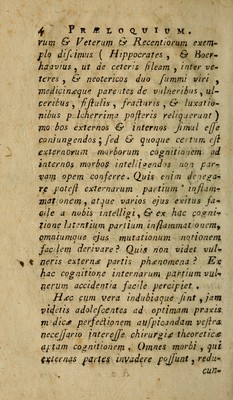 4 PRÆLOQUIUM.
rum & Veterum & Recentiorum exem-
plo discimus ( Hippocrates , & Boer-
haavius, ut de ceteris sileam , inter ve-
teres , & neotericos duo summi viri ,
medicinæque parentes de vulneribus, ul-
ceribus , fistulis , fracturis , & luxatio-
nibus pulcherrima posteris reliquerunt )
morbos externos & internos simul esse
conjungendos ; sed & quoque certum est
externorum morborum cognitionem ad
internos morbos intelligendos non par-
vam opem conferre. Quis enim denega-
re potest externarum partium inflam-
mationem , atque varios ejus exitus fa-
cile a nobis intelligi, & ex hac cogni-
tione latentium partium inflammationem,
omniumque ejus mutationum notionem
facilem derivare ? Quis non videt vul-
neris externæ partis phænomena ? Ex
hac cognitione internarum partium vul-
nerum accidentia facile percipiet .
Hæc cum vera indubiaque sint , jam
videtis adolescentes ad optimam praxis
medicæ perfectionem auspicandam vestra
necessario interesse chirurgiæ theoreticæ
aptam cognitionem . Omnes morbi , qui
externas partes invadere possunt, redu-
cun-